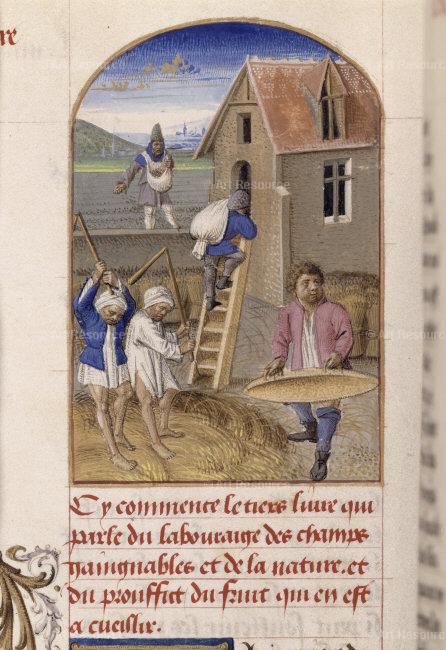 re
Cy commence le tiers livre qui
parle du labourage des champs
gaingnables et de la nature. et
du prouffict du fruit qui en est
a cueillir.
© Art Resource
© Art Resource